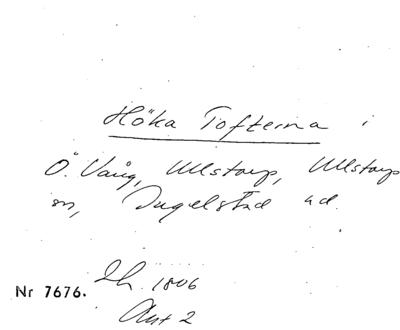 Höka Tofterna i
Ö. Vång, Ullstorp, Ullstorp
sn, Ingelstad hd.
Lh. 1806
Nr 7676.
Akt 2